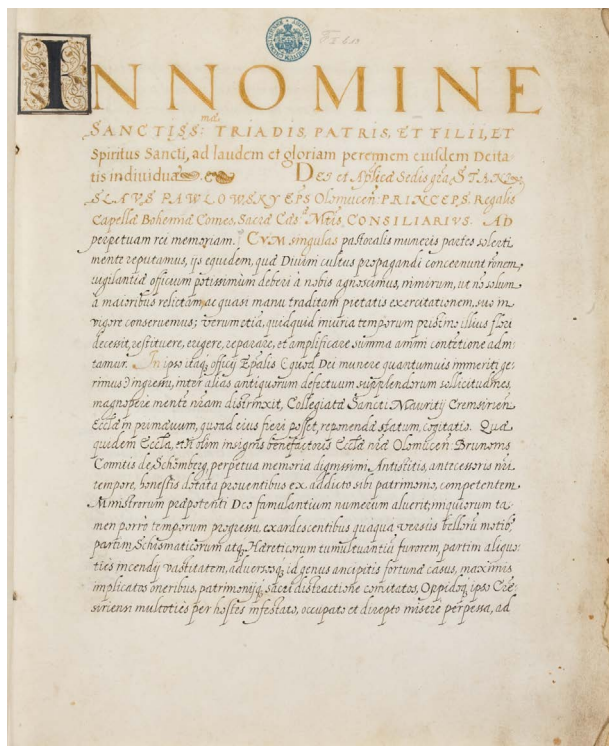 IN NOMINE
SANCTISS: TRIADIS, PATRIS, ET FILII, ET
Spiritus Sancti, ad laudem et gloriam perennem eiusdem Deita-
tis individuæ. Dei et Aplicæ Sedis gra, STANI
SLAVS PAWLOWSKY EPS Olomucen: PRINCEPS, Regalis
Capellæ Bohemiæ Comes, Sacræ Cæs: Mtis CONSILIARIVS. AD
perpetuam rei memoriam. CVM singulas pastoralis muneris partes solerti
mente reputamus, ijs equidem, quæ Divini cultus propagandi concernunt ronem,
vigilantiæ officium potissimum deberi à nobis agnoscimus, nimirum, ut nō solum
à maioribus relictam, ac quasi manu traditam pietatis exercitationem, suo in
vigore conservemus; verum etiā, quidquid iniuria temporum pristino illius flori
decessit, restituere, erigere, reparare, et amplificare summa animi contētione adni-
tamur. In ipso itaq, officij Epalis quod Dei munere quantumuis immeriti ge-
rimus ingressu, inter alias antiquorum defectuum supplendorum sollicitudines,
magnopere mentē nram distrinxit, Collegiatæ Sancti Mauritij Cremsirien:
Ecclæ in primævum, quoad eius fieri posset, reponendæ statum, cogitatio. Quæ
quidem Eccla, etsi olim insignis benefactoris Ecclæ nræ Olomucen: Brunonis
Comitis de Schömberg, perpetua memoria dignissimi Antistitis, antecessoris nri
tempore, honestis dotata proventibus ex addicto sibi patrimonio, competentem
Ministrorum præpotenti Deo famulantium numerum aluerit; iniquorum ta-
men porrò temporum progressu, exardescentibus quaqua versus bellorū motibꝰ,
partim Schismaticorum atq, Hæreticorum tumultuantiū furorem, partim aliquo-
ties incendij vastitatem, adversosq, id genus ancipitis fortunæ casus, maximis
implicatos oneribus, patrimonijq, sacri distractione comitatos, Oppidoq, ipso Cre-
siriensi multoties per hostes infestato, occupato et direpto misere perpessa, ad